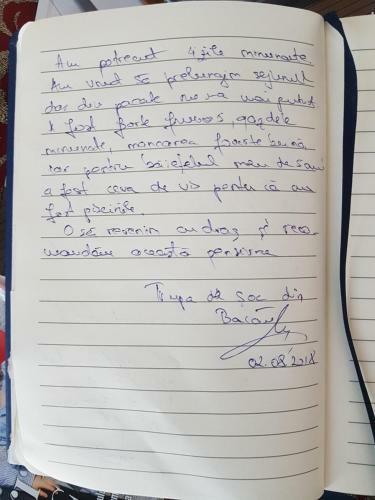 Am petrecut 4 zile minunate.
Am vrut să prelungim sejurul
dar din pacate nu s-a mai putut
A fost forte frumos, gazdele
minunate, mancarea foarte bună
iar pentru băiețelul meu de 5 ani
a fost ceva de vis pentru că au
fost piscinile.
O să revenim cu drag și reco-
mandăm această pensiune
Trupa de șoc din
Bacău
02.08.2018